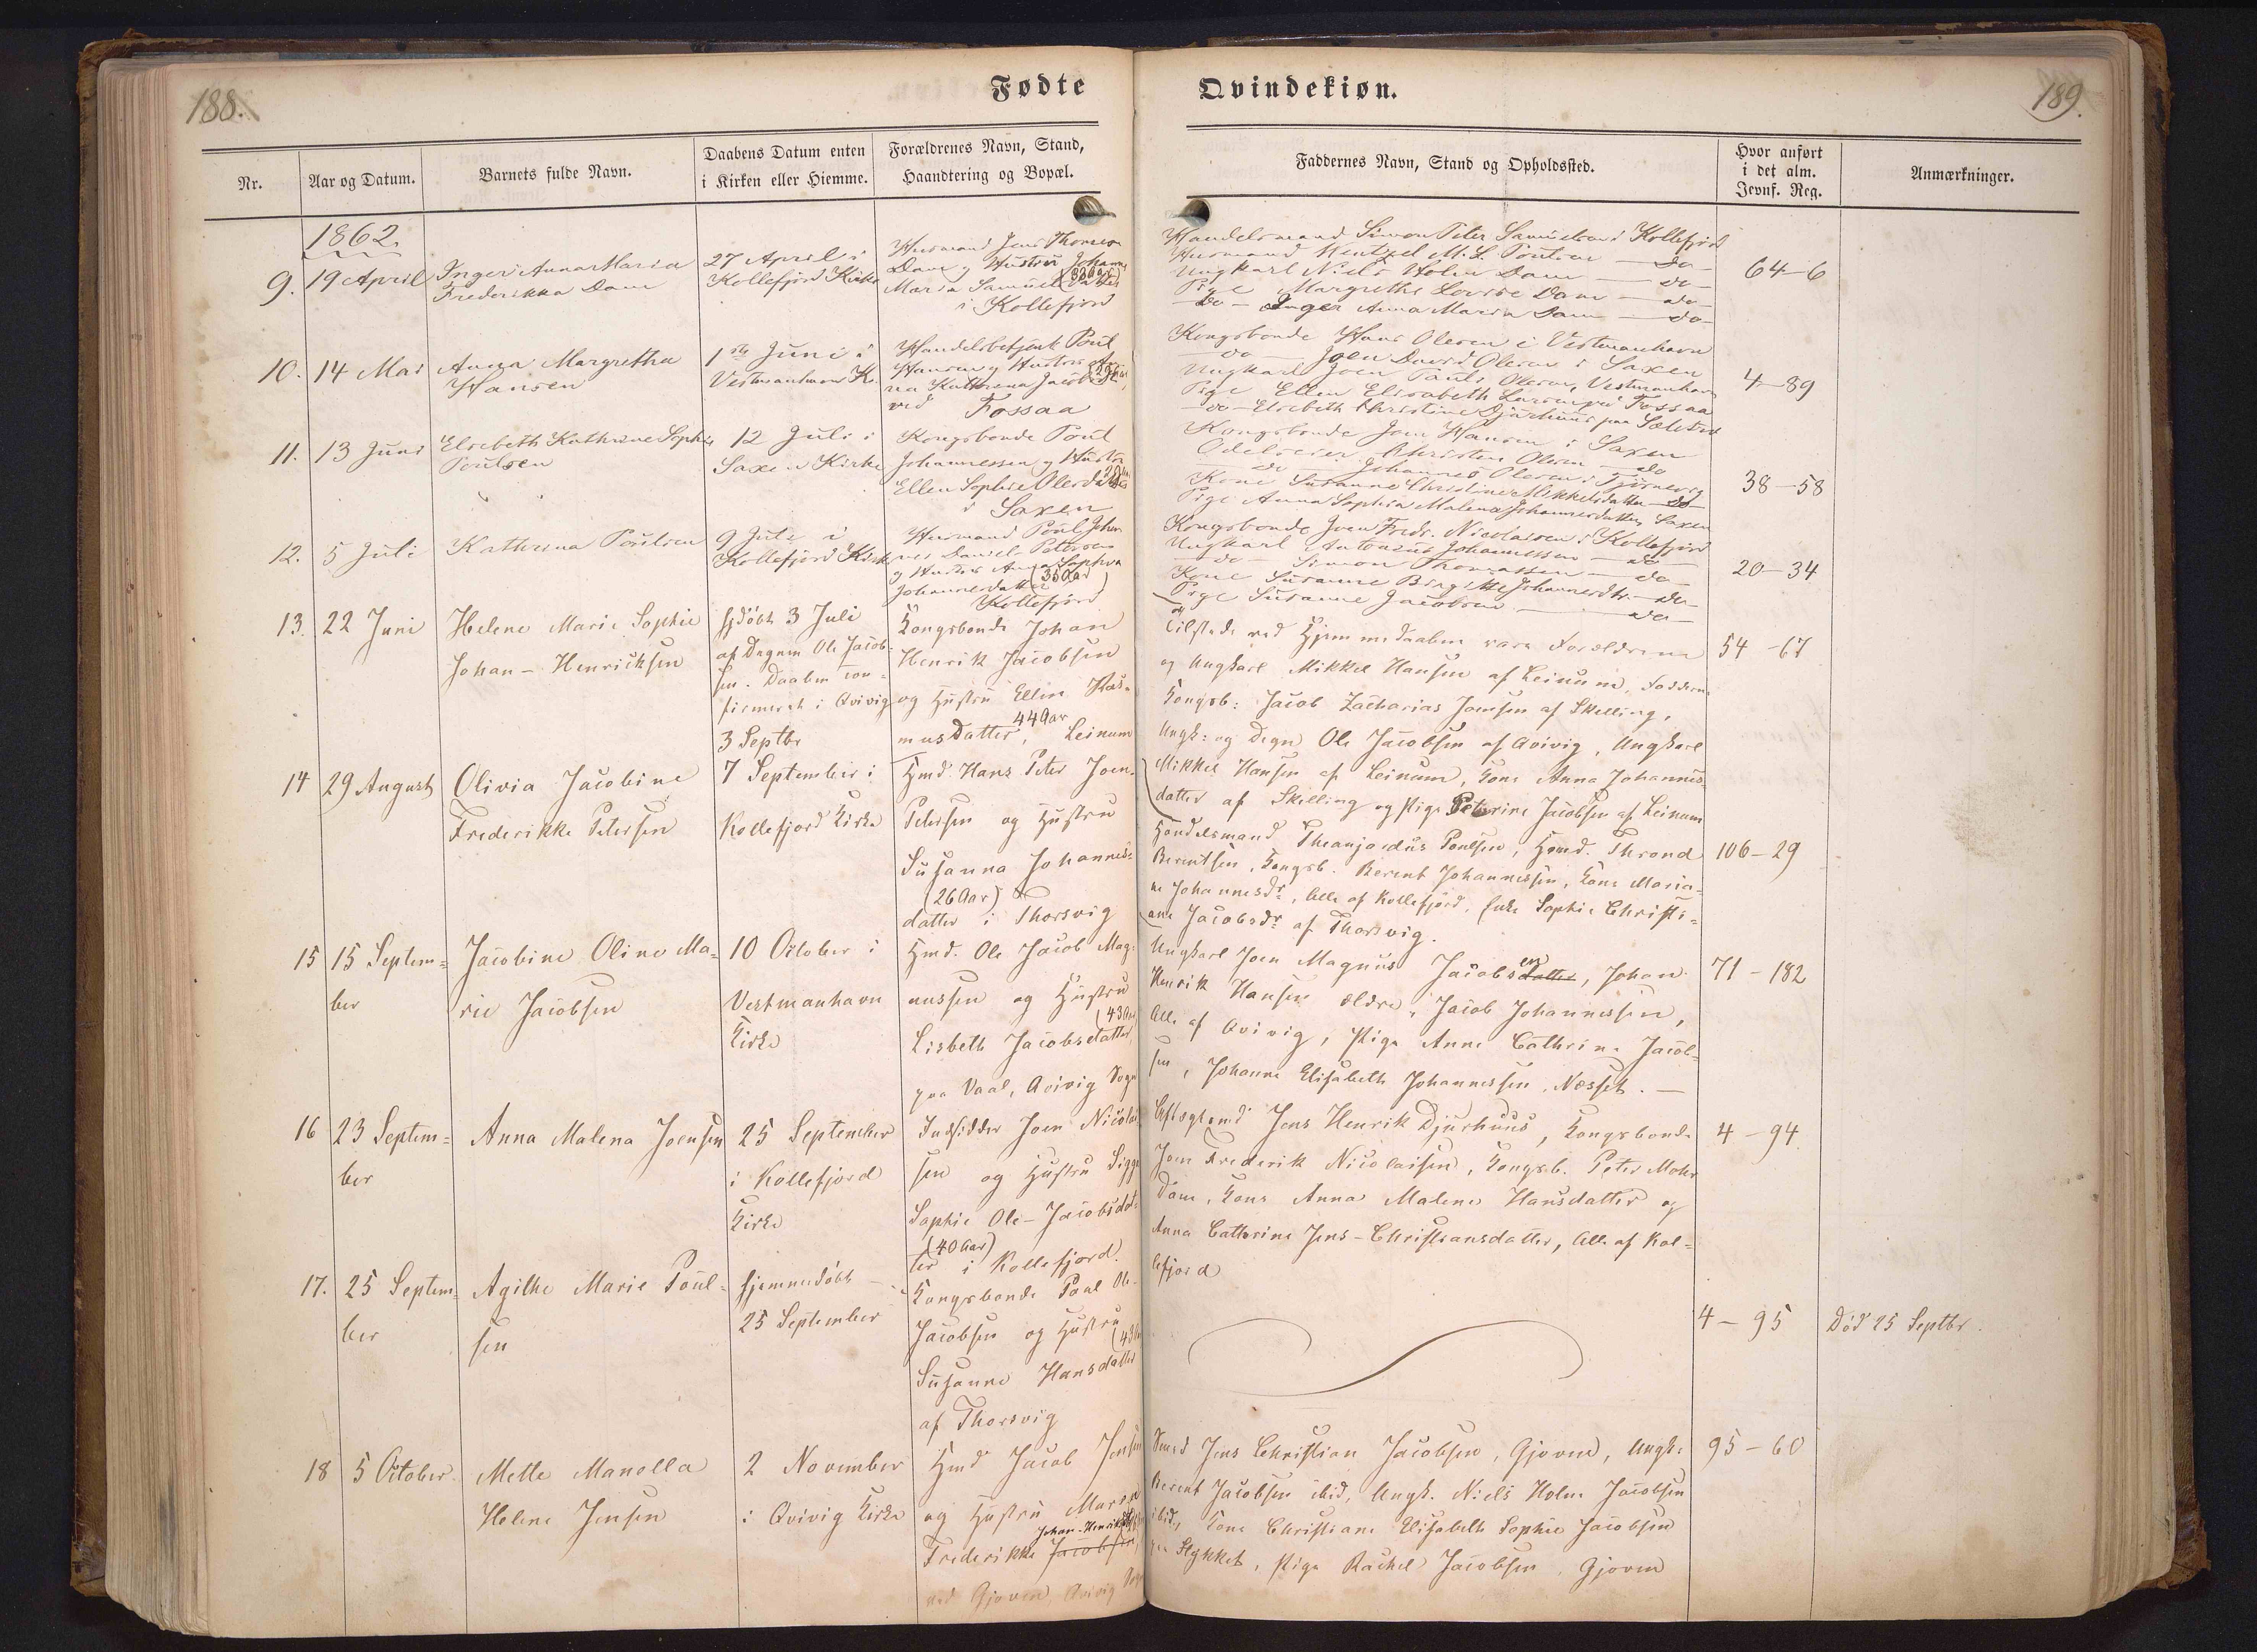 188.
Fødte
Nr.
Aar og Datum.
Barnets fulde Navn.
Daabens Datum enten
i Kirken eller Hiemme.
Forældrenes Navn, Stand,
Haandtering og Bopæl.
1862.
9.
19 April
Inger Anna Maria
Frederikka Dam
27 April i
Kollefjord Kirke
Huusmand Jens Thomsen
Dam og Hustru Johanne
Maria Samuelsdatter
i Kollefjord
10.
14 Mai
Anna Margretha
Hansen
1ste Juni i
Vestmanhavn K.
Handelsbetjent Poul
Hansen og Hustru An
na Kathrina Jacobsen
ved Fossaa
11.
13 Juni
Elsebeth Kathrine Sophie
Poulsen
12 Juli i
Saxen Kirke
Kongsbonde Poul
Johannessen og Hustru
Ellen Sophie Olesdatter
i Saxen
12.
5 Juli
Kathrina Poulsen
9 Juli i
Kollefjord Kirke
Huusmand Poul Johan
nes Daniel Petersen
og Hustru Anna Sophia
Johannesdatter (35 Aar)
Kollefjord
13.
22 Juni
Helene Marie Sophie
Johan-Henriksen
hjdøbt 3 Juli
af Degnen Ole Jacob-
sen. Daaben con-
firmeret i Qvivig
3 Septbr
Kongsbonde Johan
Henrik Jacobsen
og Hustru Ellen Ras-
44 Aar
musdatter, Leinum
14
29 August
Olivia Jacobine
Frederikke Petersen
7 September i
Kollefjord Kirke
Hmd. Hans Peter Joen-
Petersen og Hustru
Susanna Johannes-
(26 Aar)
datter i Thorsvig
15
15 Septem-
ber
Jacobine Oline Ma-
rie Jacobsen
10 October i
Vestmanhavn
Kirke
Hmd. Ole Jacob Mag-
nussen og Hustru
(43 Aar)
Lisbeth Jacobsdatter
paa Vaal, Qvivig Sogn
16
23 Septem-
ber
Anna Malena Joensen
25 September
i Kollefjord
Kirke
Indsidder Joen Nicolai
sen og Hustru Sigga
Sophie Ole-Jacobsdat-
(40 Aar)
ter i Kollefjord.
17.
25 Septem-
ber
Agithe Marie Poul-
sen
hjemmedøbt
25 September
Kongsbonde Poul Ole-
Jacobsen og Hustru
Susanne Hansdatter
af Thorsvig
18
5 October
Mette Manella
Helene Jensen
2 November
i Qvivig Kirke
Hmd Jacob Jensen
og Hustru Maria
Johan-Henriks
Frederikke Jacobsen
ved Gjoven, Qvivig Sogn
Qvindekiøn.
189.
Faddernes Navn, Stand og Opholdssted.
Hvor anført
i det alm.
Jevnf. Reg.
Anmærkninger.
Handelsmand Simon Peter Samuelsen i Kollefjord
Huusmand Wentzel M. L. Poulsen - do -
Ungkarl Niels Holm Dam - do -
Pige Margrethe Lovise Dam - do -
- do - Inger Anna Maria Dam - do -
64-6
Kongsbonde Hans Olesen i Vestmanhavn
do Joen David Olesen i Saxen
Ungkarl Joen Pauli Olesen, Vestmanhavn
Pige Ellen Elisabeth Larsen ved Fossaa
- do - Elsebeth Christine Djurhuus paa Sælstad
4-89
Kongsbonde Joen Hansen i Saxen
Odelseier Christen Olesen - do
do Johannes Olesen i Tjørnevig
Kone Susanne Christine Mikkelsdatter do
Pige Anna Sophia Malena Johannesdatter, Saxen
38-58
Kongsbonde Joen Fredr. Nicolaisen i Kollefjord
Ungkarl Antonius Johannessen - do -
- do - Simon Thomassen - do -
Kone Susanne Birgitte Johannesdtr. - do -
Pige Susanne Jacobsen - do -
20-34
Tilstede ved Hjemmedaaben vare Forældrene
og Ungkarl Mikkel Hansen af Leinum, Faddere
Kongsb: Jacob Zacharias Joensen af Skelling,
Ungk: og Degn Ole Jacobsen af Qvivig, Ungkarl
Mikkel Hansen af Leinum, Kone Anna Johannes-
datter af Skelling og Pige Peterine Jacobsen af Leinum
54-67
Handelsmand Theanjordus Poulsen, Hmd. Thrond
Berentsen, Kongsb. Berent Johannessen, Kone Maria-
ne Johannesdr, Alle af Kollefjord, Enke Sophie Christi-
ane Jacobsdr af Thorsvig.
106-29
Ungkarl Joen Magnus Jacobsdatter, Johan
Henrik Hansen ældre, Jacob Johannessen,
Alle af Qvivig, Pige Anne Cathrine Jacob-
sen, Johanne Elisabeth Johannessen, Nesset. -
71-182
Jens Henrik Djurhuus, Kongsbonde
Joen Frederik Nicolaisen, Kongsb. Peter Mohr
Dam, Kone Anna Malene Hansdatter og
Anna Cathrine Jens-Christiansdatter, Alle af Kol-
lefjord
4-94
4-95
Død 25 Septbr.
Smed Jens Christian Jacobsen, Gjoven, Ungk:
Berent Jacobsen ibid, Ungk. Niels Holm Jacobsen
ibid, Kone Christiane Elisabeth Sophie Jacobsen
paa Stykket, Pige Rachel Jacobsen, Gjoven
95-60